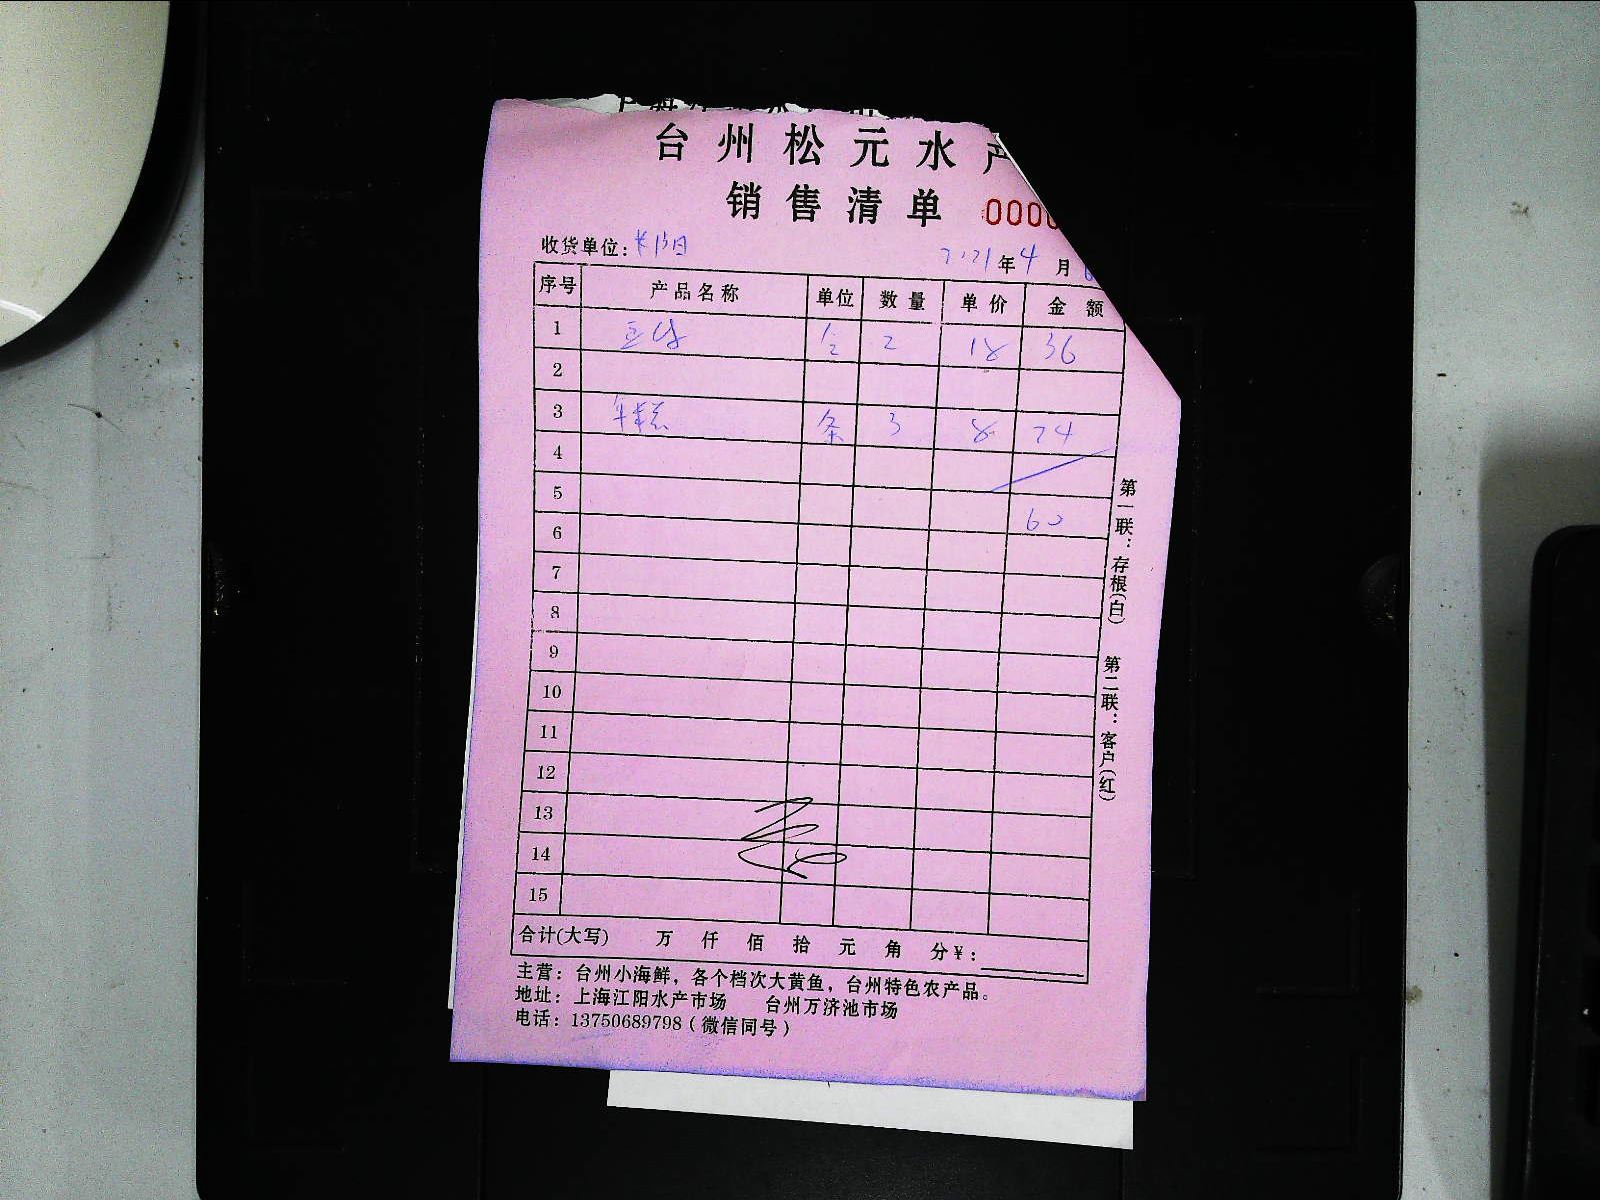 台州松元水产
销售清单 0000
收货单位: 2021年4月
序号 产品名称 单位 数量 单价 金额
1 2 18 36
2
3 年糕 条 3 8 24
4
5 60
6
7
8
9
10
11
12
13
14
15
合计(大写) 万 仟 佰 拾 元 角 分¥:
主营：台州小海鲜，各个档次大黄鱼，台州特色农产品。
地址：上海江阳水产市场 台州万济池市场
电话：13750689798（微信同号）
第一联：存根(白)
第二联：客户(红)